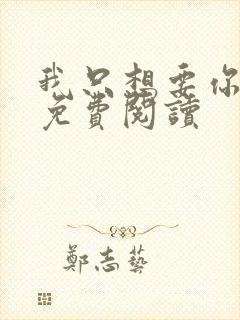 我只想要你
免費閱讀
鄭志藝